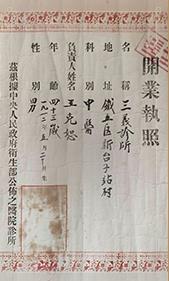 開業執照
名稱 三義診所
地址 鐵五區新台子站村
科別 中醫
負責人姓名 王克恕
年齡 四十三歲
一九一二年五月二十日生
性別 男
茲根據中央人民政府衛生部公佈之醫院診所